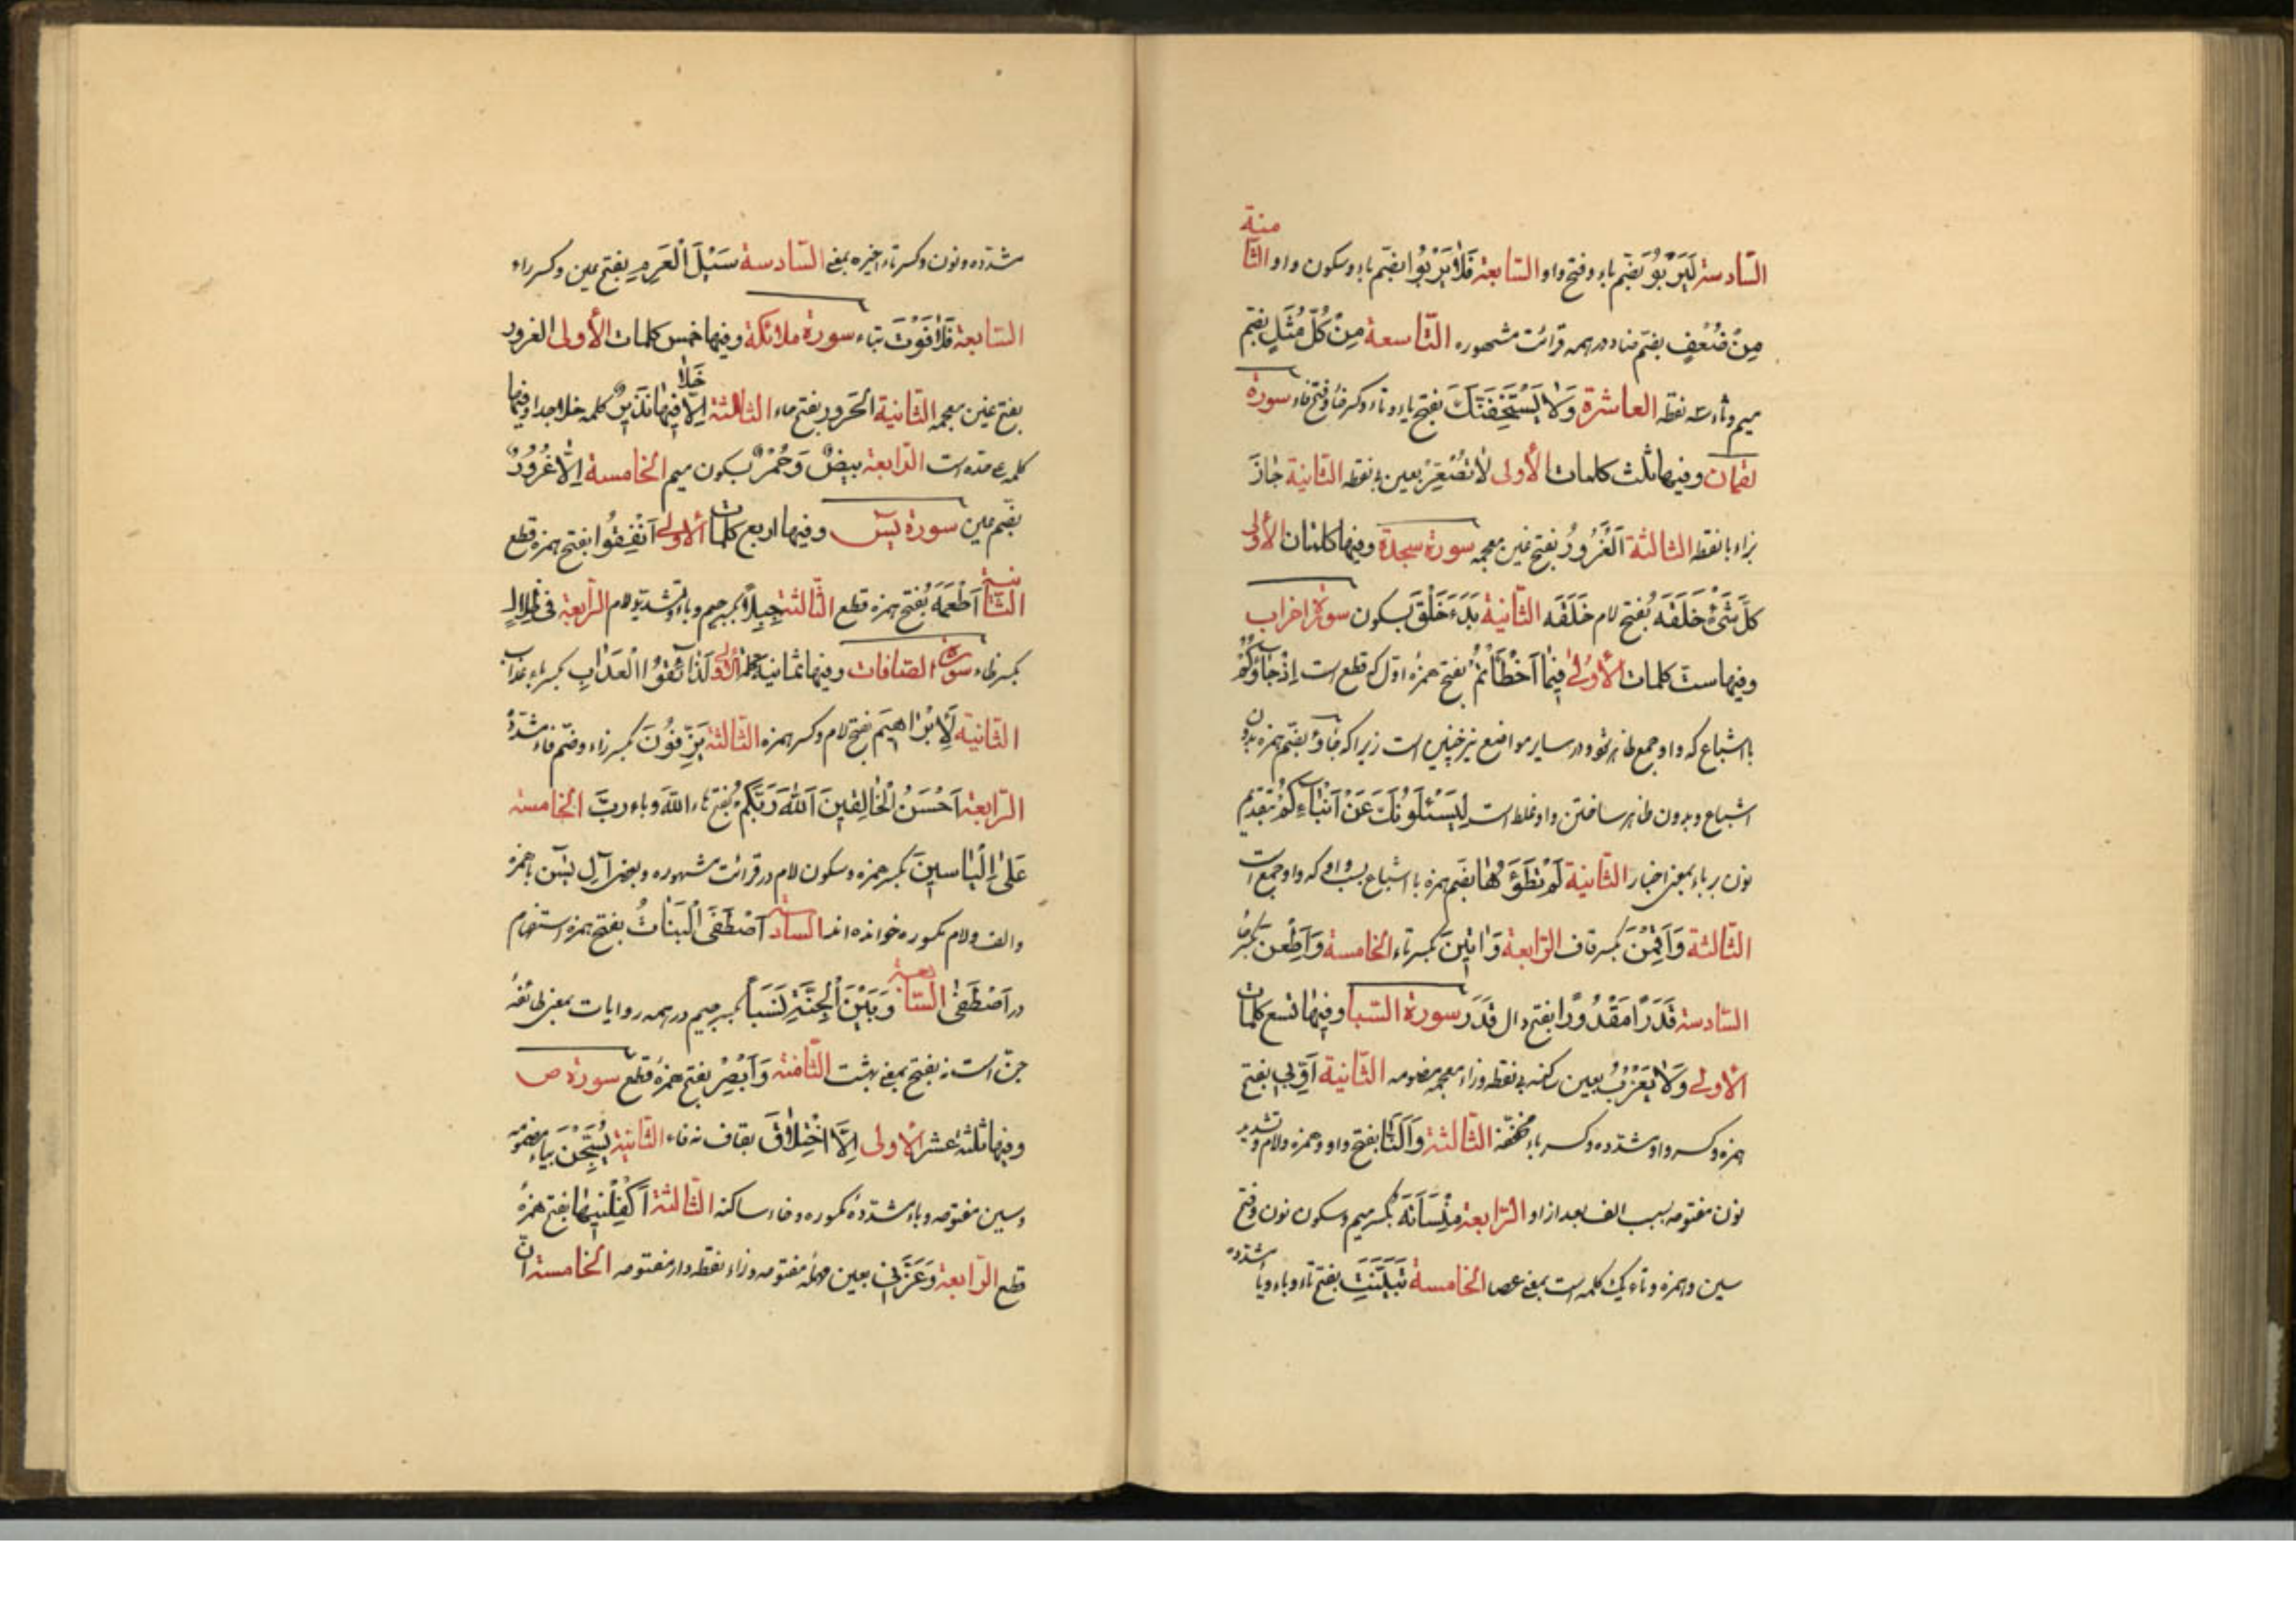 السّادسة لَیَرْبُوَ بضّم باء و فتح واو السّابعة فَلا یَرْبُوا بضّم باء و سکون واو الثّامنة
مِنْ ضُعْفٍ بضّم ضاد در همه قرائت مشهوره التّاسعة مِنْ کُلِّ مَثَلٍ بفتح
میم و ثاء سه نقطه العاشرة وَلا یَسْتَخِفَّنَّكَ بفتح یاء و تاء و کسر خاء و فتح فاء سورة
لقمان و فیها ثلث کلمات الأولى لا تُصَعِّرْ بعین بی نقطه الثّانیة جازَ
بزاء با نقطه الثّالثة اَلْغَرُورُ بفتح غین معجمه سورة سجدة و فیها کلمتان الأولى
کُلَّ شَیْءٍ خَلَقَهُ بفتح لام خَلَقَه الثّانیة بَدَءَ خَلْقَ بسکون سورة احزاب
و فیها ستّ کلمات الأولى فیما اَخْطَأْتُمْ بفتح همزهٔ اوّل که قطع است اِذْ جاؤُكُمْ
با اشباع که واو جمع ظاهر شود و در سایر مواضع نیز چنین است زیرا که جاؤُ بضّم همزه بدون
اشباع و بدون ظاهر ساختن واو غلط است لِیَسْئَلُونَكَ عَنْ اَنْباءِكُمْ بتقدیم
نون بر باء بمعنی اخبار الثّانیة لَمْ تَطَؤُها بضّم همزه با اشباع بسبب واوی که واو جمع است
الثّالثة وَاَقِمْنَ بکسر قاف الرّابعة وَاتینَ بکسر تاء الخامسة وَاَطِعْنَ بکسر طا
السّادسة قَدَرًا مَقْدُورًا بفتح دال قَدَرَ سورة السّبا و فیها تسع کلمات
الأولى وَلا یَعْزُبُ بعین ساکنه بی نقطه و زاء معجمه مضمومه الثّانیة اَوِّبی بفتح
همزه و کسر واو مشدّده و کسر باء مخفّفه الثّالثة وَاَلَنّا بفتح واو و همزه و لام و تشدید
نون مفتوحه بسبب الف بعد از او الرّابعة مِنْسَأَتَهُ بکسر میم و سکون نون و فتح
سین و همزه و تاء یک کلمه است بمعنی عصا الخامسة تَبَیَّنَتِ بفتح تاء و باء و یاء مشدّده
مشدّده و نون و کسر تاء اخیره بمعنی السّادسة سَیْلَ الْعَرِمِ بفتح عین و کسر راء
السّابعة فَلا فَوْتَ بتاء سورة ملائکة و فیها خمس کلمات الأولى الغرور
بفتح غین معجمه الثّانیة الحَرور بفتح حاء الثّالثة اِلّا خَلا فیها نَذیرٌ کلمه خلا جدا و فیها
کلمه علی حده است الرّابعة بیضٌ وَحُمْرٌ بسکون میم الخامسة اِلّا غُرُورٌ
بضّم غین سورة یسٓ و فیها اربع کلمات الأولى اَنْفِقُوا بفتح همزه قطع
الثّانیة اَطْعَمَهُ بفتح همزه قطع الثّالثة جِبِلًّا بکسر جیم و باء و تشدید لام الرّابعة فی ظِلالٍ
بکسر ظاء سورة الصّافات و فیها ثمانیة کلمات الأولى لَذائِقُوا الْعَذابِ بکسر باء عذاب
الثّانیة لَاِبْراهیمَ بفتح لام و کسر همزه الثّالثة یَزِفُّونَ بکسر زاء و ضّم فاء مشدّدهٔ
الرّابعة اَحْسَنُ الْخالِقینَ اَللّهَ رَبَّكُمْ بفتح هاء اللّهَ و باء ربَّ الخامسة
عَلى اِلْیاسینَ بکسر همزه و سکون لام در قرائت مشهوره و بعضی آلِ یسٓن با همزه
و الف و لام مکسوره خوانده‌اند السّادسة اَصْطَفَى الْبَناتِ بفتح همزه استفهام
در اَصْطَفى السّابعة وَبَیْنَ الْجِنَّةِ نَسَبًا بکسر جیم در همه روایات بمعنی طائفهٔ
جنّ است نه بفتح بمعنی بهشت الثّامنة وَاَبْصِرْ بفتح همزهٔ قطع سورة ص
و فیها ثلثة عشر الأولى اِلَّا اخْتِلاقٌ بقاف نه فاء الثّانیة یُسَبِّحْنَ بیاء مضمومه
و سین مفتوحه و باء مشدّدهٔ مکسوره و حاء ساکنه الثّالثة اَکْفِلْنیها بفتح همزهٔ
قطع الرّابعة وَعَزَّنی بعین مهمله مفتوحه و زاء نقطه دار مفتوحه الخامسة انّ